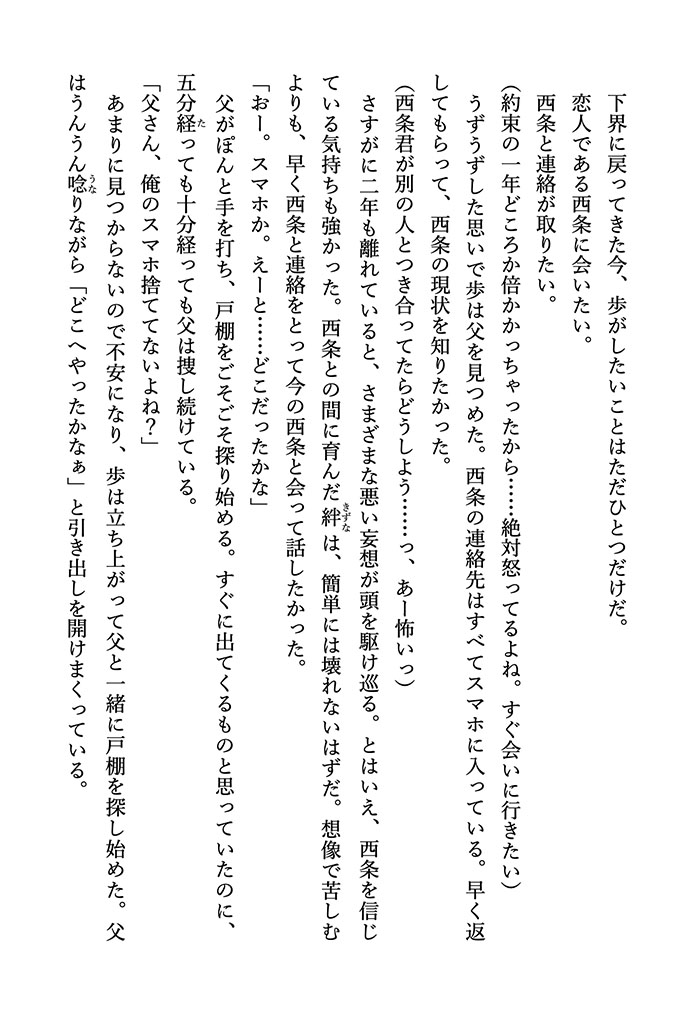 下界に戻ってきた今、歩がしたいことはただひとつだけだ。
恋人である西条に会いたい。
西条と連絡が取りたい。
(約束の一年どころか倍かかっちゃったから……絶対怒ってるよね。すぐ会いに行きたい)
うずうずした思いで歩は父を見つめた。西条の連絡先はすべてスマホに入っている。早く返
してもらって、西条の現状を知りたかった。
(西条君が別の人とつき合ってたらどうしよう……っ、あー怖いっ)
さすがに二年も離れていると、さまざまな悪い妄想が頭を駆け巡る。とはいえ、西条を信じ
ている気持ちも強かった。西条との間に育んだ絆きずなは、簡単には壊れないはずだ。想像で苦しむ
よりも、早く西条と連絡をとって今の西条と会って話したかった。
「おー。スマホか。えーと……どこだったかな」
父がぽんと手を打ち、戸棚をごそごそ探り始める。すぐに出てくるものと思っていたのに、
五分経たっても十分経っても父は捜し続けている。
「父さん、俺のスマホ捨ててないよね?」
あまりに見つからないので不安になり、歩は立ち上がって父と一緒に戸棚を探し始めた。父
はうんうん唸うなりながら「どこへやったかなぁ」と引き出しを開けまくっている。